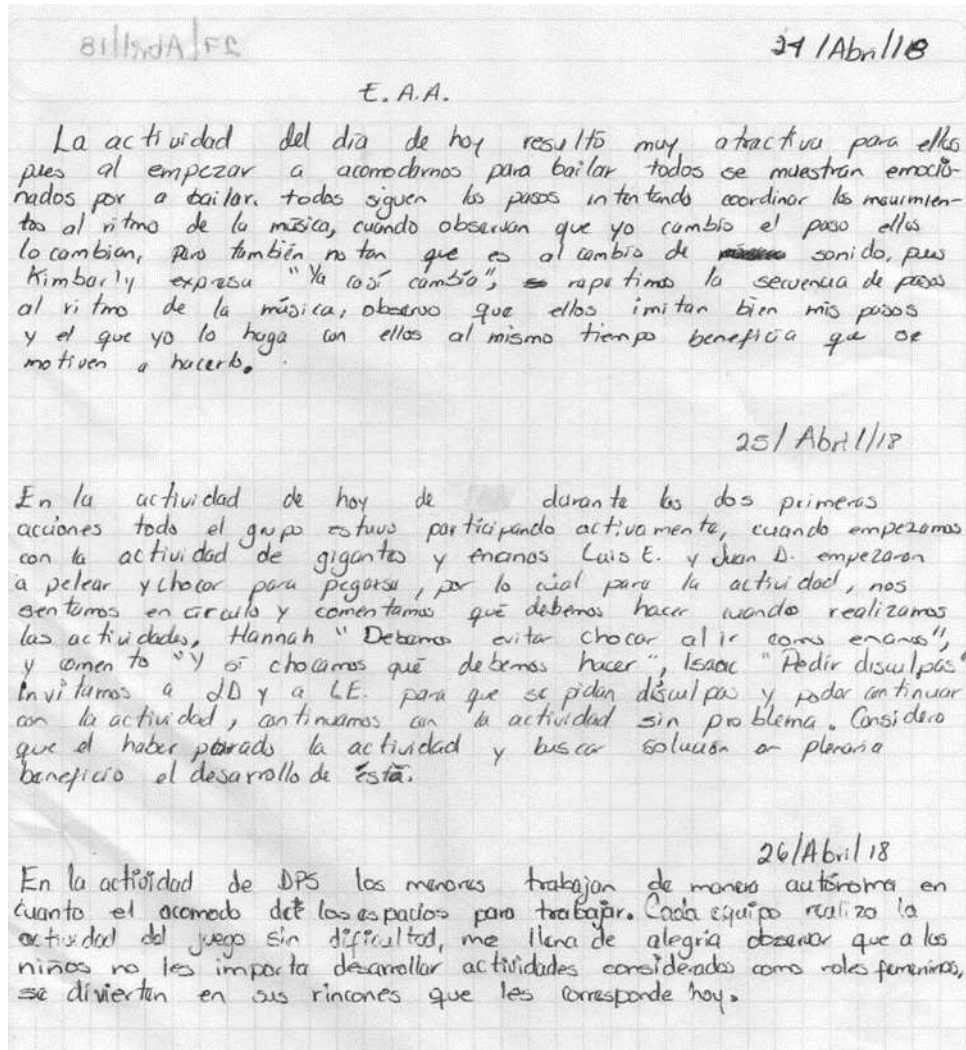 27/Abril/18
24/Abril/18
E.A.A.
La actividad del dia de hoy resultó muy atractiva para ellos
pues al empezar a acomodarnos para bailar todos se muestran emocio-
nados por a bailar. todos siguen los pasos intentando coordinar los movimien-
tos al ritmo de la música, cuando observan que yo cambio el paso ellos
lo cambian, pero también notan que es al cambio de sonido, pues
Kimbarly expresa "Ya casí cambio", repetimos la secuencia de pasos
al ritmo de la música, observo que ellos imitan bien mis pasos
y el que yo lo haga con ellos al mismo tiempo beneficia que se
motiven a hacerlo.
25/Abril/18
En la actividad de hoy de durante las dos primeras
acciones todo el grupo estuvo participando activamente, cuando empezamos
con la actividad de gigantes y enanos Luis E. y Juan D. empezaron
a pelear y chocar para pegarse, por lo cual paro la actividad, nos
sentamos en circulo y comentamos qué debemos hacer cuando realizamos
las actividades, Hannah "Debemos evitar chocar al ir como enanos",
y comento "Y si chocamos qué debemos hacer", Isaac "Pedir disculpas"
Invitamos a JD y a LE. para que se pidan disculpas y poder continuar
con la actividad, continuamos con la actividad sin problema. Considero
que el haber parado la actividad y buscar solución en plenaria
beneficio el desarrollo de ésta.
26/Abril/18
En la actividad de DPS los menores trabajan de manera autónoma, en
cuanto el acomodo de los espacios para trabajar. Cada equipo realizo la
actividad del juego sin dificultad, me llena de alegria observar que a los
niños no les importa desarrollar actividades considerados como roles femeninos,
se divierten en sus rincones que les corresponde hoy.